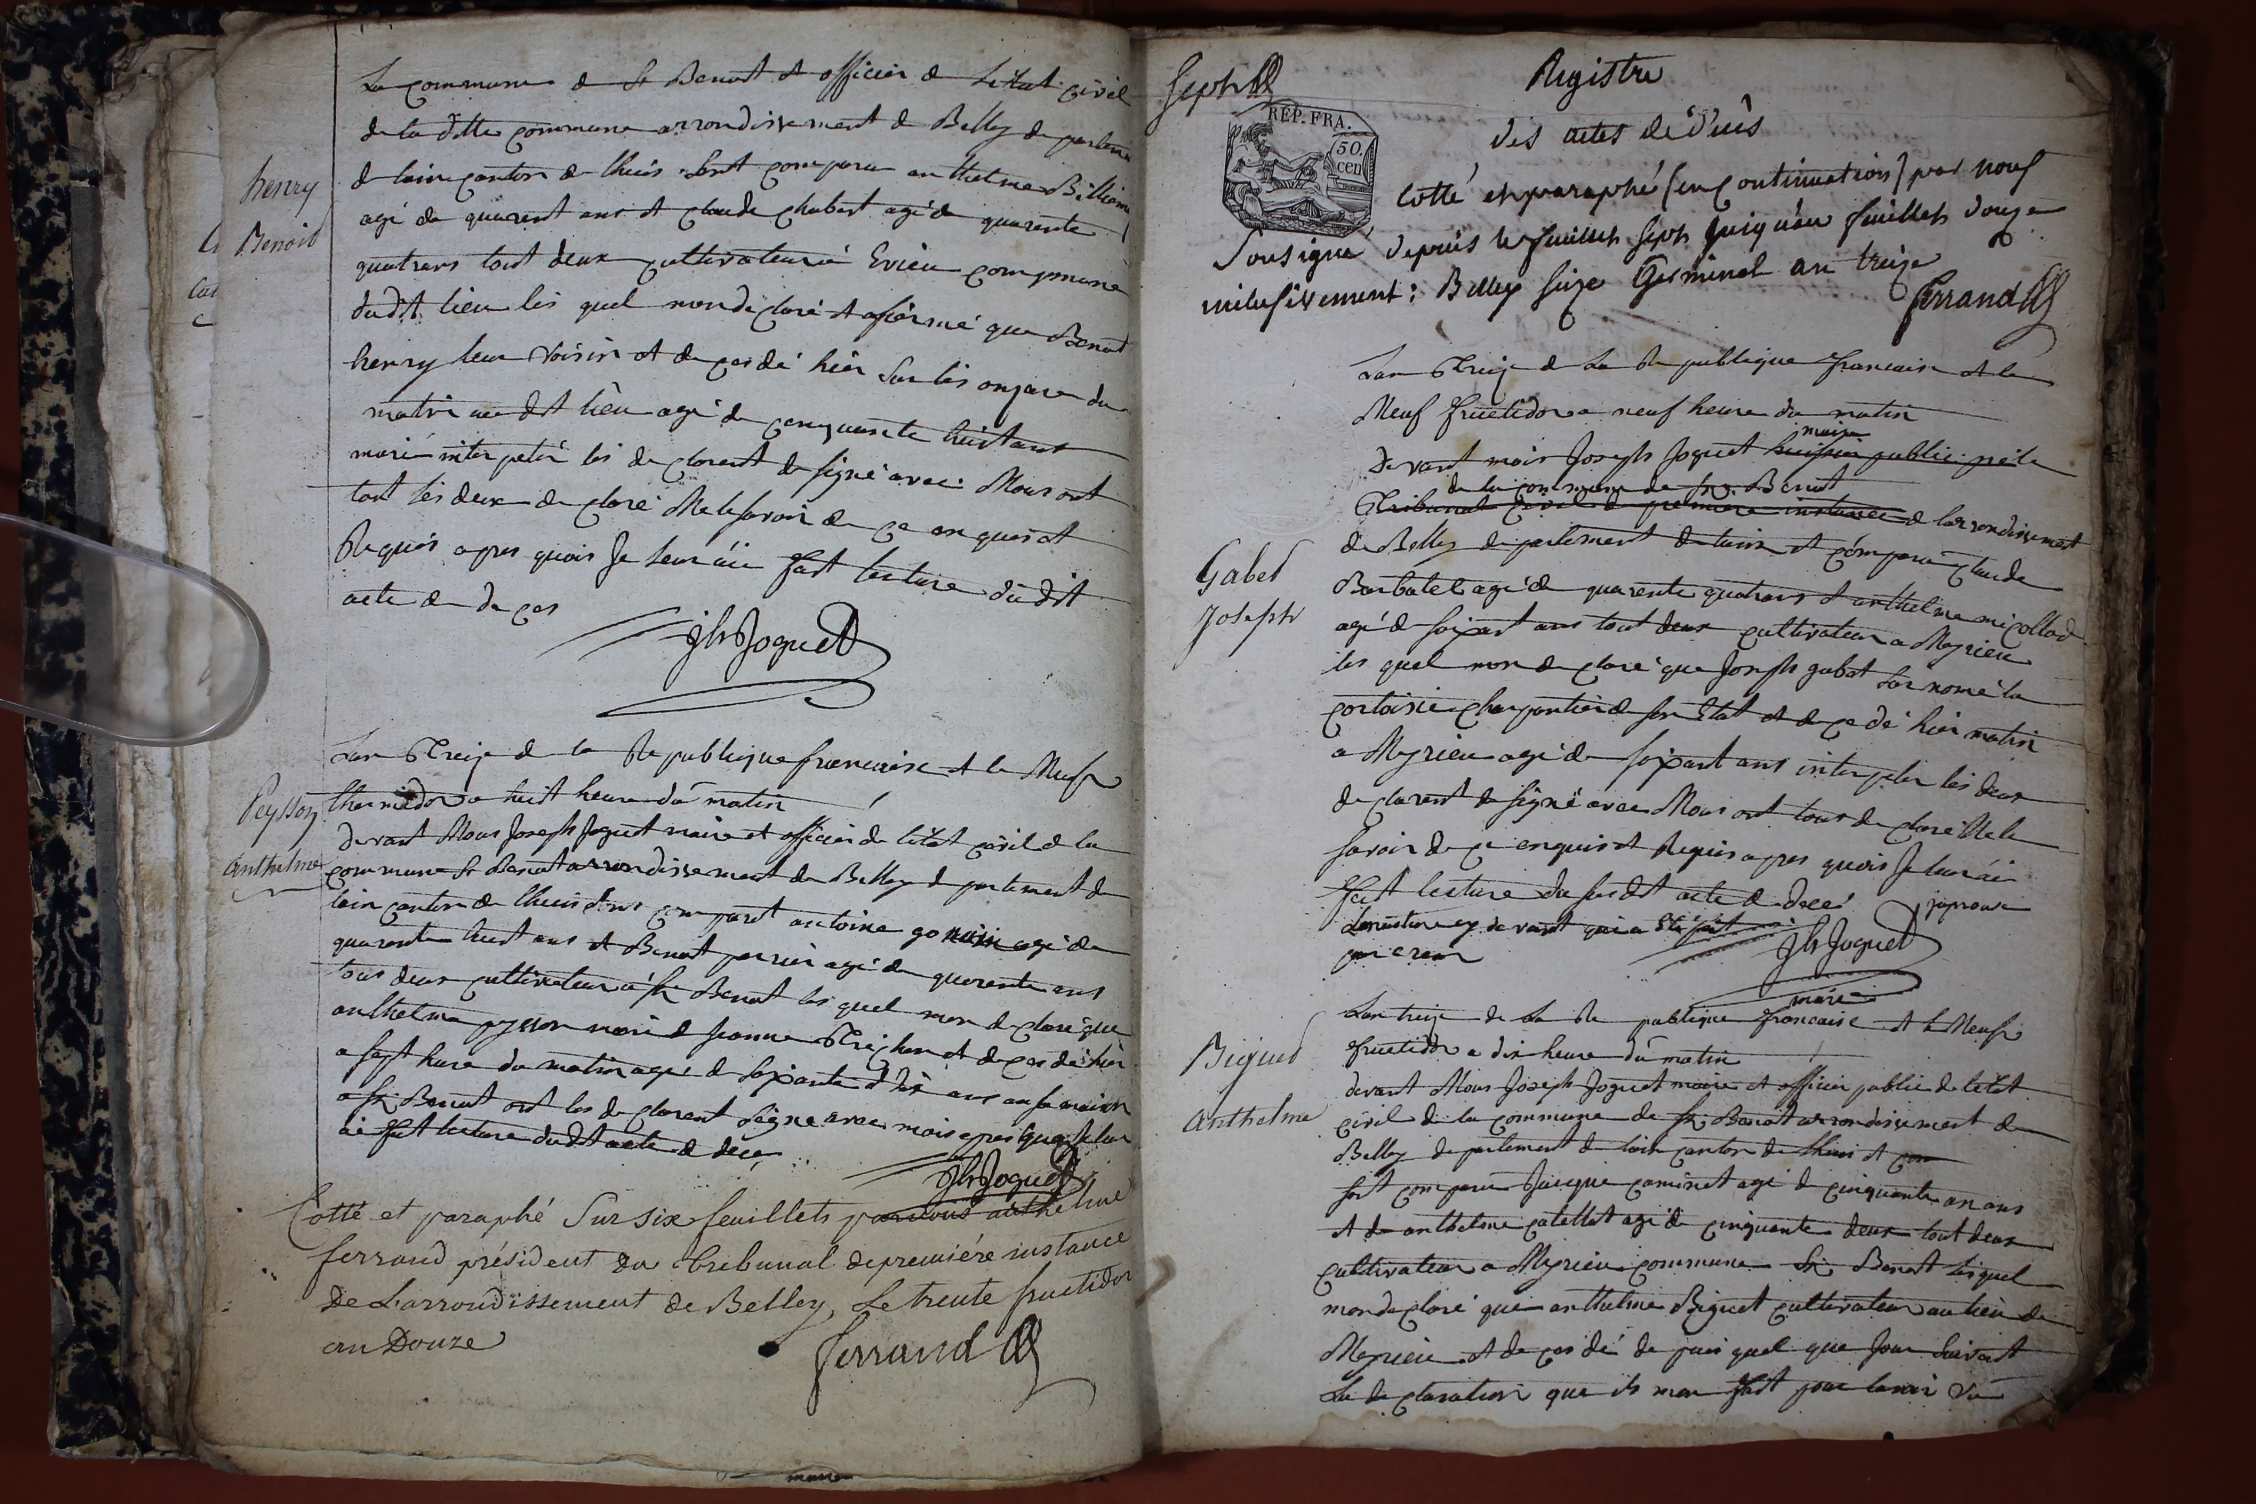 La commune de St Benoit et officier de letat civil
de la ditte commune arrondissement de Belley departement
de lain canton de lhuis sont comparu anthelme Billiemin
agé de quarent ans et claude chabert agé de quarente
quatrans tout deux cultivateur à Evieu commune
dudit lieu les quel mon declaré et afirmé que Benoit
henry leur voisin et decedé hier sur les onzare du
matin audit lieu agé de cenquante huit ans
marié interpelé les declarent de signé avec Nous ont
tout les deux declaré Ne le savoir de ce enquis et
Requis apres quois Je leur ai fait lecture du dit
acte de deces
Jh Joguet
henry
Benoit
Lan Treize de la Republique francaise et le Neuf
thermidor a huit heure du matin
devant Nous Joseph Joguet maire et officier de letat civil de la
commune St Benoit arrondissement de Belley departement de
lain canton de lhuis sont comparut antoine gonnin agé de
quarente huit ans et Benoit perrier agé de quarente ans
tous deux cultivateur a St Benoit les quel mon declaré que
anthelme peysson marié de Jeanne Trechon et decedé hier
a sept hure du matin agé de soixante et dix ans en sa maison
a St Benoit ont les declarent signe avec mois apres quoi Je leur
ai fait lecture du dit acte de deces
Jh Joguet
Peysson
anthelme
Cotté et paraphé Sur six feuillets par nous anthelme
ferrand président du tribunal de premiére instance
De L'arrondissement de Belley, Le trente fructidor
an Douze
ferrand
Sept
REP. FRA.
50.
cen
Registre
des actes de décès
Cotté et paraphé (en Continuation) par nous
Sousigné depuis le feuillet sept jusqu'au feuillet douze
inclusivement: Belley seize Germinal an treize
ferrand
Lan Treize de La Republique francaise et le
Neuf fructidor a neuf heure du matin
maire
Devant mois Joseph Joguet huissier public pré le
de la commune de St Benoit
Tribunal civil de premiere instance de larrondissement
de Belley departement de lain et comparu claude
Barbatel agé de quarente quatrans et anthelme micollod
agé de soixant ans tout deux cultivateur a Meyrieu
les quel mon declaré que Joseph gabet surnomé la
cortoisie charpantier de son Etat et decedé hier matin
a Meyrieu agé de soixant ans interpeler les deux
declarent de signé avec Nous ont tous declaré Ne le
savoir de ce enquis et Requis apres quois Je leur ai
fait lecture du susdit acte de decé japrouve
la rature cy devant qui a Eté fait
par ereur
Jh Joguet
maire
Gabet
Joseph
Lan treize de La Republique francaise et le Neuf
fructidor a dix heure du matin
devant Nous Joseph Joguet maire et officier public de letat
civil de la commune de St Benoit arrondissement de
Belley departement de lain canton de lhuis et com
sont comparu Jacque caminet agé de cinquante an ans
et de anthelme catellat agé de cinquante deux tout deux
cultivateur a Meyrieu commune St Benoit lesquel
mon declaré que anthelme Biguet cultivateur au lieu de
Meyrieu et decedé de puis quel que Jour suivant
La declaration que ils mon fait pour lavoir vu
Biguet
Anthelme